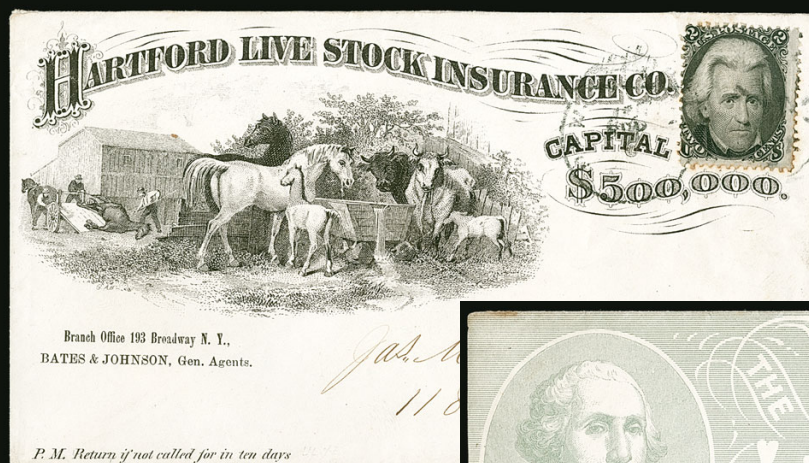 HARTFORD LIVE STOCK INSURANCE CO.
CAPITAL
$500,000.
Branch Office 193 Broadway N. Y.,
BATES & JOHNSON, Gen. Agents.
Jas. M
118
P. M. Return if not called for in ten days
THE